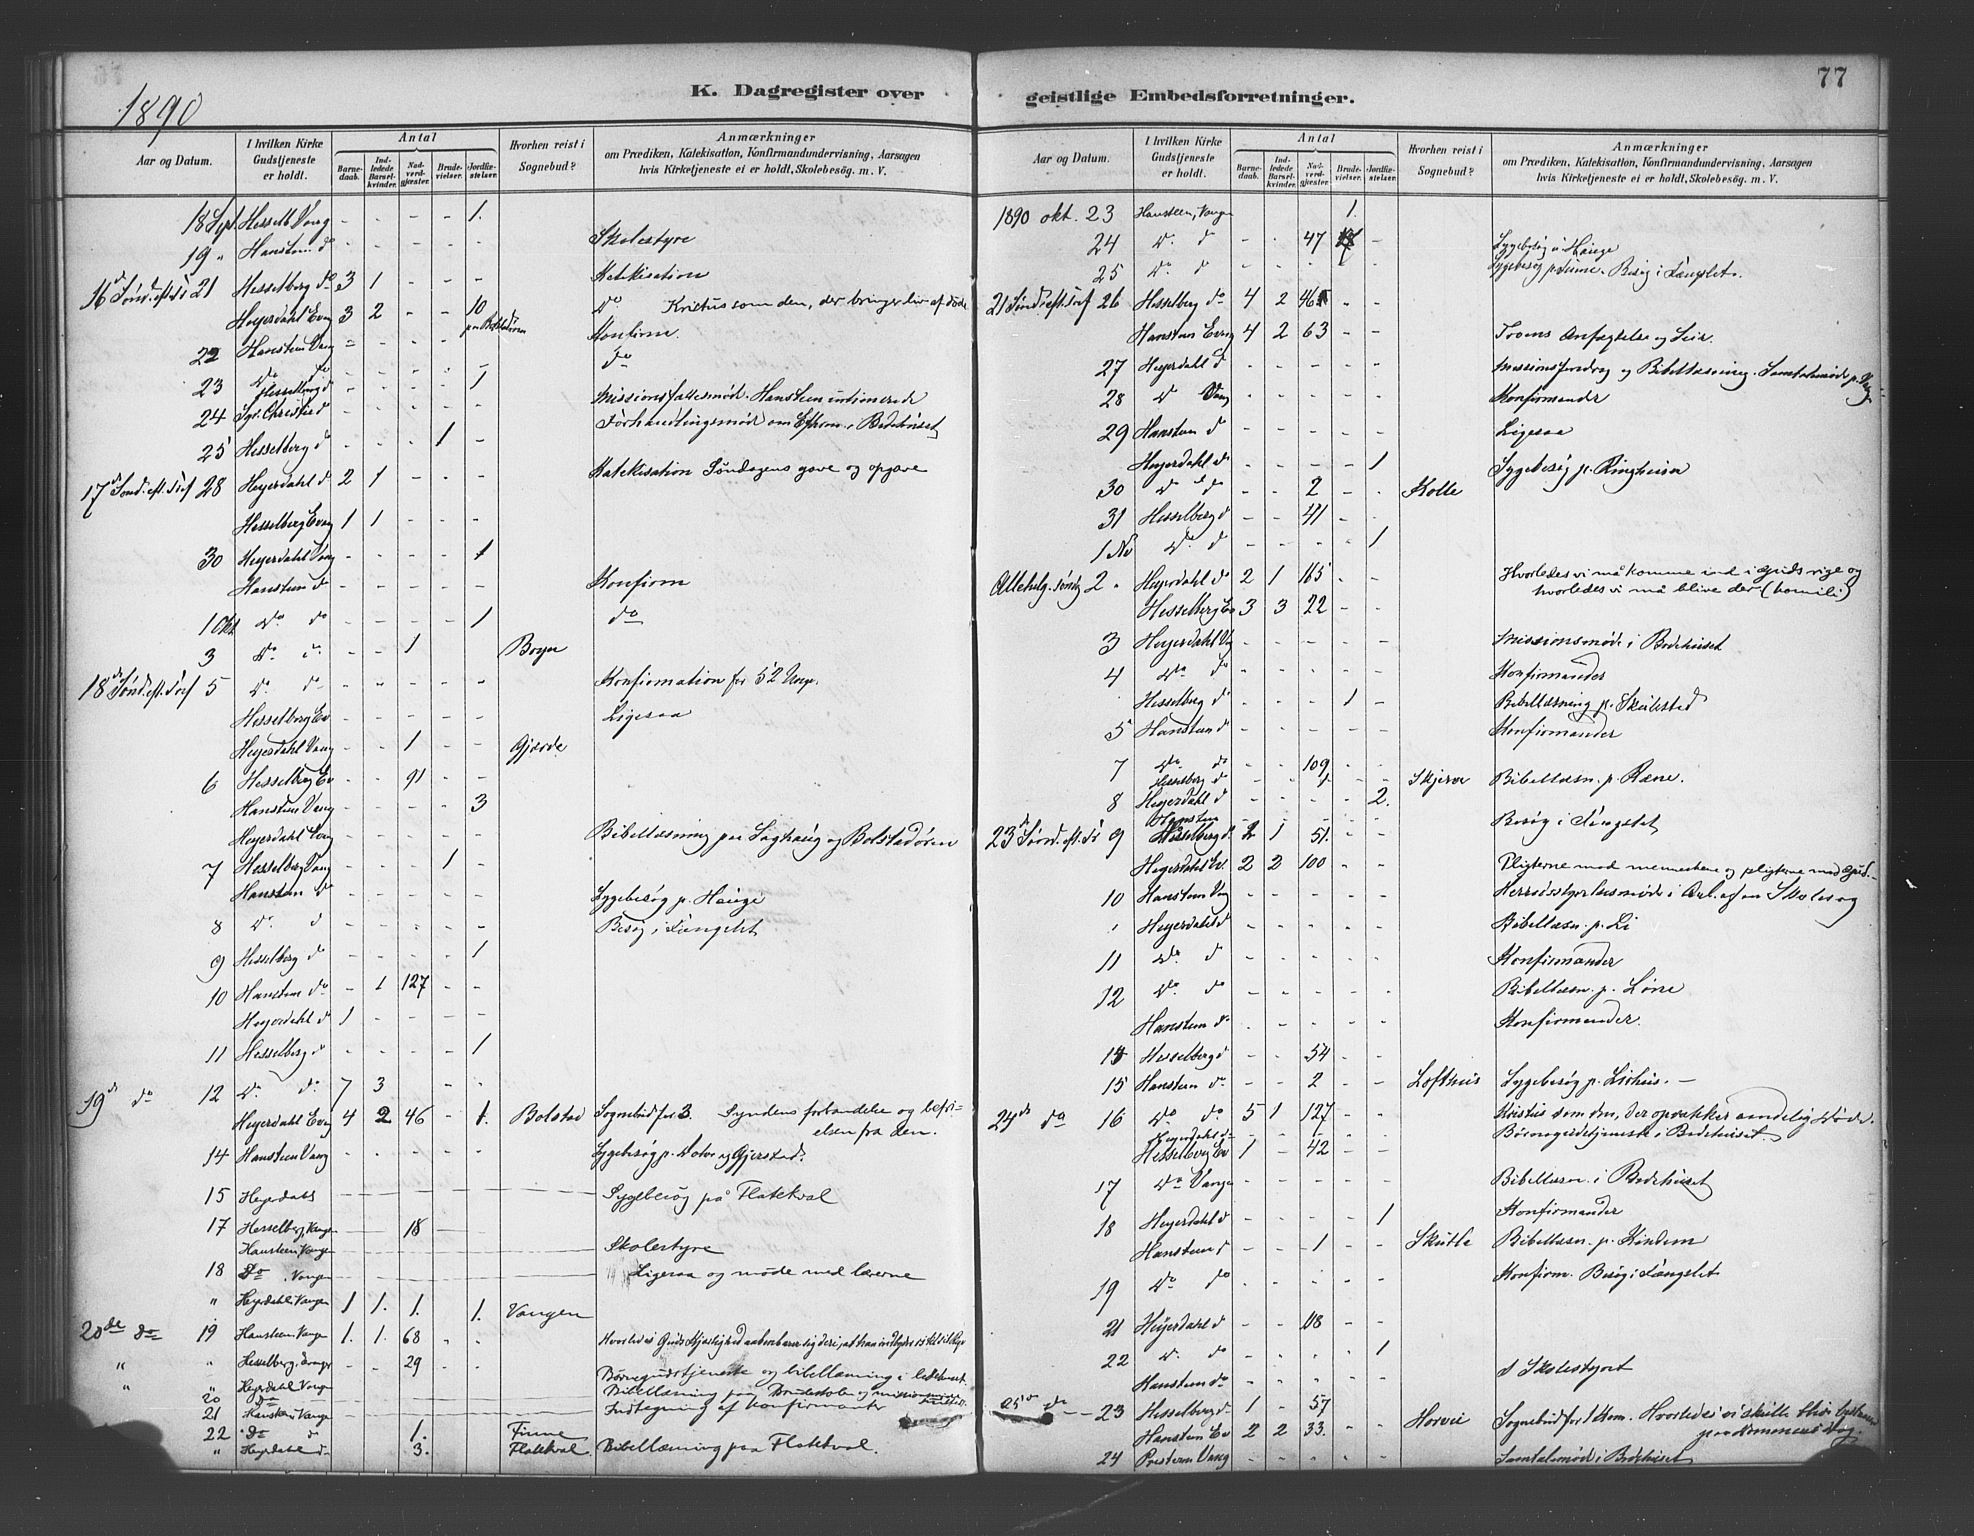 77
1890
K. Dagregister over
geistlige Embedsforretninger.
Aar og Datum.
I hvilken Kirke Gudstjeneste er holdt.
Antal
Barnedaab.
Indledede Barselkvinder.
Nadverdgjester.
Brudevielser.
Jordfæstelser.
Hvorhen reist i Sognebud?
Anmærkninger
om Prædiken, Katekisation, Konfirmandundervisning, Aarsagen
hvis Kirketjeneste ei er holdt, Skolebesøg. m. V.
18 Sept. Hesselb Vang - - - - 1.
19 " Hansteen do - - - - - Skolestyre
16d Sønd. eft. 21 Hesselberg do 3 1 - - - Katekisation
Heyerdahl Evang 3 2 - - 10 do Kristus som den, der bringer liv af døde
Konfirm.
22 Hansteen Vang - do
23 do do
Hesselberg d - - - - 1
24 Chrestie d - - - - - Missionsfællesmøde. Hansteen
25 Hesselberg d - - - 1 - Forhandlingsmøde om i Bedehuset
17d Sønd. eft. Tref 28 Heyerdahl d 2 1 - - - Katekisation Søndagens gave og opgave
Hesselberg Evang 1 1 - - -
30 Heyerdahl Vang - - - - 1
Hansteen d - - - - - Konfirm
1 Okt do do - - - - 1 do
3 do - - 1
18d Sønd. eft. Tref 5 do d - - - - - Konfirmation for 52 Unge.
Hesselberg Ev - - - - - Ligesaa
Heyerdahl Vang - - 1 - - Gjerde
6 Hesselberg Ev - - 91 - -
Hansteen Vang - - - - 3
Heyerdahl Vang - - - - - Bibellæsning paa Saghaug og Bolstadøren
7 Hesselberg Vang - - - 1 -
Hansteen d - - - - - Sygebesøg p. Hauge
8 do d - - - - - Besøg i Fængslet
9 Hesselberg d - - - - 1
10 Hansteen do - 1 127 - -
Heyerdahl d 1 - - - -
11 Hesselberg d - - - - 1
19d do 12 do do 7 3 - -
Heyerdahl Evang 4 2 46 - 1. Bolstad Sognebud for 3. Syndens forbandelse og befri-
elsen fra den.
14 Hansteen Vang - - - - - Sygebesøg p. og Gjerstad.
15 Heyerdahl - Sygebesøg på Flatekval
17 Hesselberg, Vangen - - 18 - -
Hansteen, Vangen - Skolestyre
18 Do, Vangen - Ligesaa og møde med lærerne
" Heyerdahl, Vangen 1 1. 1. 1. Vangen
20de do 19 Hansteen, Vangen 1. 1. 68 - - Hvorledes Guds Kjærlighed aabenbarer sig deri, at han
" " Hesselberg, - - 29 - -
" " Heyerdahl Vangen Børnegudstjeneste og bibellæsning i bedehuset.
20 Do Bibellæsning paa
21 Hansteen Vangen Indtegning af konfirmanter
22 Do d 1. Finne
" Heyerdahl d 3. Flatekval Bibellæsning paa Flatekval.
Aar og Datum.
I hvilken Kirke Gudstjeneste er holdt.
Antal
Barnedaab.
Indledede Barselkvinder.
Nadverdgjester.
Brudevielser.
Jordfæstelser.
Hvorhen reist i Sognebud?
Anmærkninger
om Prædiken, Katekisation, Konfirmandundervisning, Aarsagen
hvis Kirketjeneste ei er holdt, Skolebesøg. m. V.
1890 okt. 23 Hansteen, Vangen 1.
24 do d - - 47 - Sygebesøg i Hauge
25 do d - - - - - Sygebesøg p. Finne. Besøg i Fængslet.
21 Sønd eft. Tref 26 Hesselberg do 4 2 46 - -
Hansteen Evang 4 2 63 - - Troens Anfægtelse og Seir.
27 Heyerdahl d - - - - - Missionsforedrag og Bibellæsning. Samtalemøde p.
28 do Vang - - - - - Konfirmander
29 Hansteen d - - - - - Ligesaa
Heyerdahl d - - - - 1 Sygebesøg p. Ringheim
30 do do - - 2 - - Kolle
31 Hesselberg d - - 41 -
1 No do d - - - - 1
Allehelg. søndg 2 Heyerdahl do 2 1 165 - - Hvorledes vi må komme ind i Guds rige og
hvorledes vi må blive der (homili)
Hesselberg Ev 3 3 22 - -
3 Heyerdahl Vg - - - - - Missionsmøde i Bedehuset
4 do do - - - - - Konfirmander
Hesselberg d - - - 1 - Bibellæsning p. Skulestad
5 Hansteen d - - - - - Konfirmander
7 do do - - 109 - -
Hesselberg d Bibellæsn. p. Ræne.
8 Heyerdahl d - - - - 2.
Hansteen - - - - - Besøg i Fængslet
23d Sønd. eft. 9 Hesselberg d 2 1 51. - -
Heyerdahl Ev. 2 2 100 - - Pligterne mod menneskene og pligterne mod Gud.
10 Hansteen Vang - - - - - Herredsstyrelsesmøde i Anl. af en Skolesag
Heyerdahl d - - - - - Bibellæsn. p. Li
11 do d - - - - - Konfirmander
12 do do - - - - - Bibellæsn. p. Løne
Hansteen do - - - - - Konfirmander.
Hesselberg d - - 54 - -
15 Hansteen do - - 2 - - Lofthus Sygebesøg p. Lirhus. -
24d do 16 do do 5 1 127 - - Kristus som den, der opvækker aandelig Døde.
Heyerdahl do Børnegudstjeneste i Bedehuset
Hesselberg Ev 1 - 42 - -
17 do Vange - - - - - Bibellæsn. i Bedehuset
18 Heyerdahl d - - - - 1 Konfirmander
Hansteen d - - 1 - - Skutle Bibellæsn. p. Kindem
19 do do - - - - - Konfirm. Besøg i Fængslet
21 Heyerdahl d - - 118 - -
22 do do - - - - 1
Hansteen do - - - - - Skolestyret
25d do - 23 Hesselberg d 1 - 57 - -
Hansteen Ev 2 2 33. - - Horvei Sognebud for 1 Kom. Hvorledes vi skulle blive
24 Presterne Vang Samtalemøde i Bedehuset